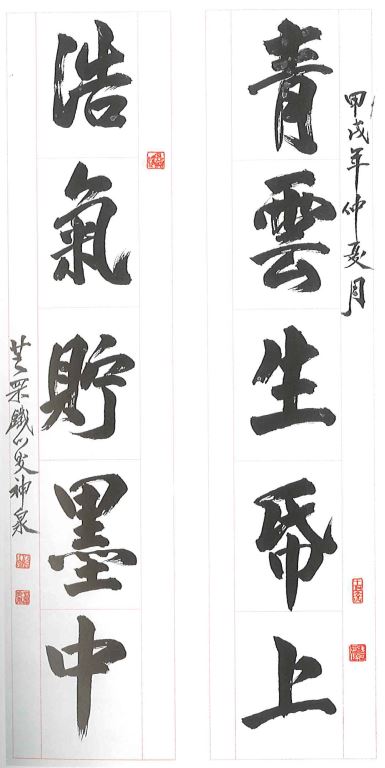 甲戌年仲夏月
青雲生帋上
浩氣貯墨中
芝罘鐵神泉